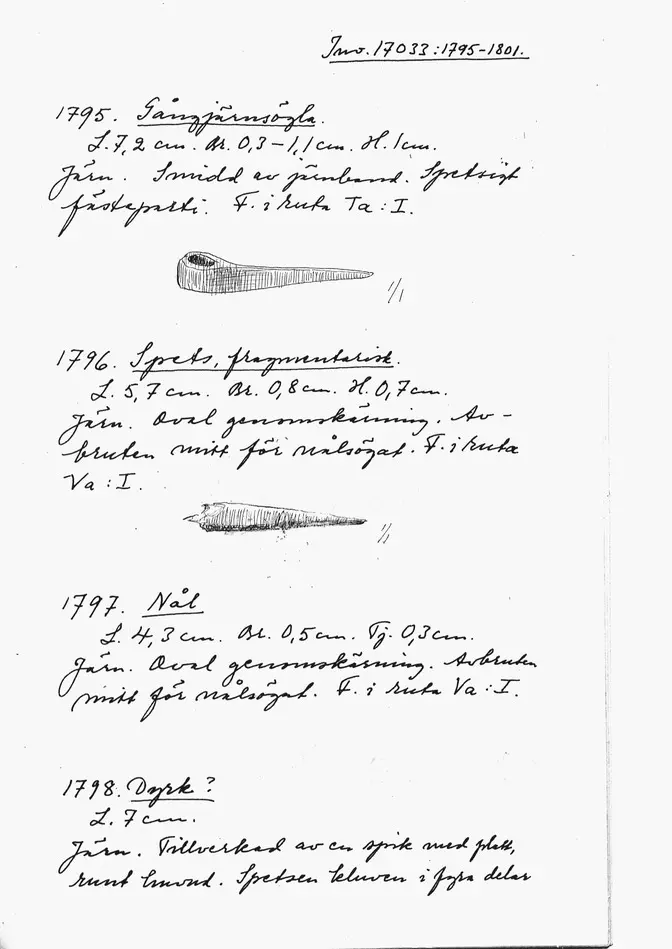 Inv. 17033:1795-1801.
1795. Gångjärnsögla.
L. 7,2 cm. Br. 0,3-1,1 cm. H. 1 cm.
Järn. Smidd av järnband. Spetsigt
fästeparti. F. i ruta Ta:I.
1/1
1796. Spets, fragmentarisk.
L. 5,7 cm. Br. 0,8 cm. H. 0,7 cm.
Järn. Oval genomskärning. Av-
bruten mitt för nålsögat. F. i ruta
Va:I.
1/1
1797. Nål
L. 4,3 cm. Br. 0,5 cm. Tj. 0,3 cm.
Järn. Oval genomskärning. Avbruten
mitt för nålsögat. F. i ruta Va:I.
1798. Dyrk?
L. 7 cm.
Järn. Tillverkad av en spik med platt,
runt huvud. Spetsen kluven i fyra delar